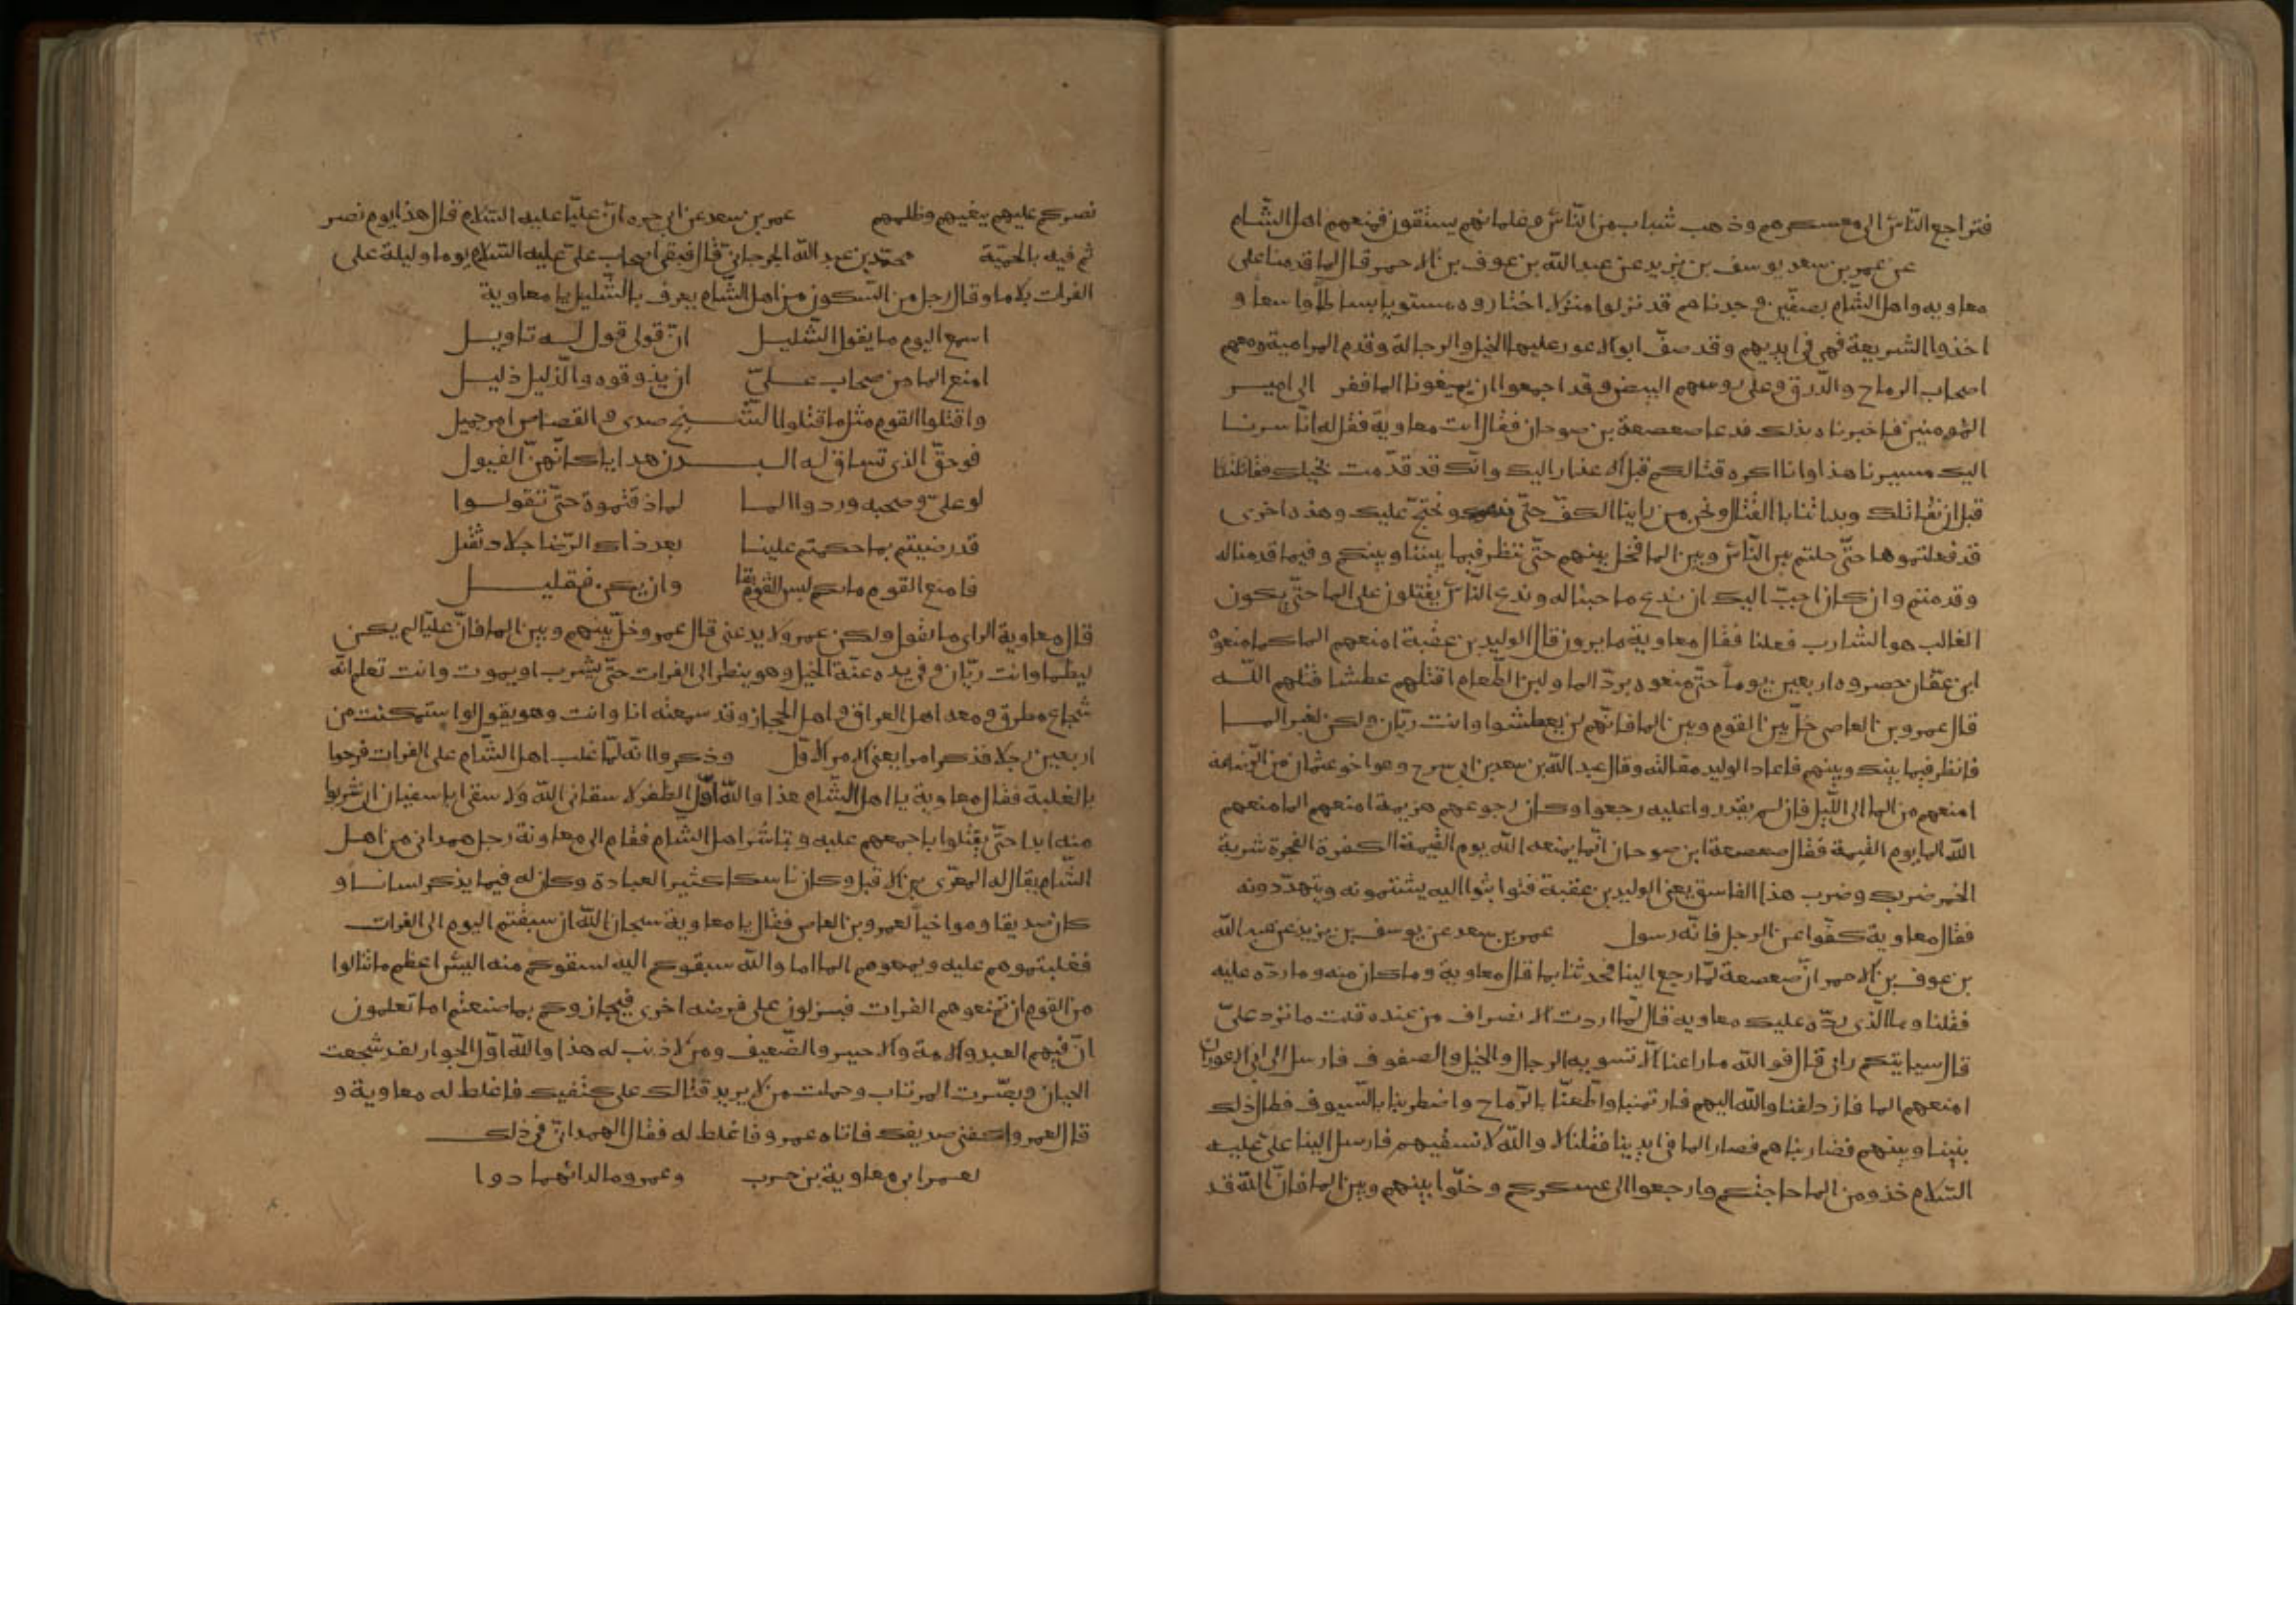 فتراجع الناس الى معسكرهم وذهب شباب من الناس وغلمانهم يستقون فمنعهم اهل الشام
عن عمر بن سعد يوسف بن يزيد عن عبد الله بن عوف بن الاحمر قال لما قدمنا على
معاويه واهل الشام بصفين وجدناهم قد نزلوا منزلا اختاروه مستويا بساطا واسعا و
اخذوا الشريعة فهى فى ايديهم وقد صف ابو الاعور عليها الخيل والرجالة وقدم المرامية ومعهم
اصحاب الرماح والدرق وعلى روسهم البيض وقد اجمعوا ان يمنعونا الما ففز الى امير
المومنين فاخبرناه بذلك فدعا صعصعة بن صوحان فقال ات معاوية فقل له انا سرنا
اليك مسيرنا هذا وانا اكره قتالكم قبل الاعذار اليك وانك قد قدمت بخيلك فقاتلتنا
قبل ان نقاتلك وبداتنا بالقتال ونحن من راينا الكف حتى ونحتج عليك وهذه اخرى
قد فعلتموها حتى حلتم بين الناس وبين الما فخل بينهم حتى ننظر فيما بيننا وبينكم وفيما قدمنا له
وقدمتم وان كان احب اليك ان ندع ما جينا له وندع الناس يقتتلون على الما حتى يكون
الغالب هو الشارب فعلنا فقال معاوية ما يرون قال الوليد بن عقبة امنعهم الما كما منعوه
ابن عفان حصروه اربعين يوما حتى منعوه برد الما ولين الطعام اقتلهم عطشا قتلهم الله
قال عمرو بن العاص خل بين القوم وبين الما فانهم لن يعطشوا وانت ريان ولكن لغير الما
فانظر فيما بينك وبينهم فاعاد الوليد مقالته وقال عبد الله بن سعد بن ابى سرح وهو اخو عثمان من الرضاعة
امنعهم من الما الى الليل فان لم يقدروا عليه رجعوا وكان رجوعهم هزيمة امنعهم الما منعهم
الله الما يوم القيمة فقال صعصعة ابن صوحان انما يمنعه الله يوم القيمة الكفرة الفجرة شربة
الخمر ضربك وضرب هذا الفاسق يعنى الوليد بن عقبة فتواثبوا اليه يشتمونه ويتهددونه
فقال معاوية كفوا عن الرجل فانه رسول عمر بن سعد عن يوسف بن يزيد عن عبد الله
بن عوف بن الاحمر ان صعصعة لما رجع الينا فحدثنا بما قال معاوية وما كان منه وما رده عليه
فقلنا وما الذى رده عليك معاويه قال لما اردت الانصراف من عنده قلت ما ترد على
قال سياتيكم رايى قال فو الله ما راعنا الا تسويه الرجال والخيل والصفوف فارسل الى ابى الاعور ان
امنعهم الما فازدلفنا والله اليهم فارتمينا واطعنا بالرماح واضطربنا بالسيوف فطال ذلك
بيننا وبينهم فضاربناهم فصار الما فى ايدينا فقلنا لا والله لا نسقيهم فارسل الينا على عليه
السلام خذو من الما حاجتكم وارجعوا الى عسكركم وخلوا بينهم وبين الما فان الله قد
نصركم عليهم ببغيهم وظلمهم عمر بن سعد عن ابى حره ان عليا عليه السلام قال هذا يوم نصر
ثم فيه بالحمية محمد بن عبد الله الجرجانى قال فبقى اصحاب على عليه السلام يوما وليلة على
الفرات بلا ما وقال رجل من السكون من اهل الشام يعرف بالشليل يا معاوية
اسمع اليوم ما يقول الشليل ان قولى قول له تاويل
امنع الما من صحاب على ان يذوقوه والذليل ذليل
واقتلوا القوم مثل ما قتلوا الشيخ صدى و القصاص امر جميل
فوحق الذى تساق له البدن هدايا كانهن الفيول
لو على وصحبه وردوا الما لما ذقتموه حتى تقولوا
قد رضيتم بما حكمتم علينا بعد ذاك الرضا جلاد ثقيل
فامنع القوم ماكم ليس للقوم بقا وان يكن فقليل
قال معاوية الراى ما تقول ولكن عمرو لا يدعنى قال عمرو خل بينهم وبين الما فان عليا لم يكن
ليظما وانت ريان وفى يده عنة الخيل وهو ينظر الى الفرات حتى يشرب او يموت وانت تعلم انه
شجاع مطرق ومعه اهل العراق و اهل الحجاز وقد سمعته انا وانت وهو يقول لو استمكنت من
اربعين رجلا فذكر امرا يعنى الامر الاول وذكروا انه لما غلب اهل الشام على الفرات فرحوا
بالغلبة فقال معاوية يا اهل الشام هذا والله اول الظفر لا سقانى الله ولا سقى ابا سفيان ان شربوا
منه ابدا حتى يقتلوا باجمعهم عليه وتباشر اهل الشام فقام الى معاونة رجل همدانى من اهل
الشام يقال له المعرى بن الاقبل وكان ناسكا كثير العبادة وكان له فيما يذكر لسانا و
كان صديقا ومواخيا لعمرو بن العاص فقال يا معاوية سبحان الله ان سبقتم اليوم الى الفرات
فغلبتموهم عليه ويمنعوهم الما اما والله سبقوكم اليه لسقوكم منه اليس اعظم ما تنالوا
من القوم ان تمنعوهم الفرات فينزلون على فرضه اخرى فيجازوكم بما صنعتم اما تعلمون
ان فيهم العبد والامة والاجير والضعيف ومن لا ذنب له هذا والله اول الجور لقد شجعت
الجبان وبصرت المرتاب وحملت من لا يريد قتالك على كتفيك فاغلظ له معاوية و
قال لعمرو اكفنى صديقك فاتاه عمرو فاغلظ له فقال الهمدانى فى ذلك
لعمر ابى معاوية بن حرب وعمرو ما لدائهما دوا